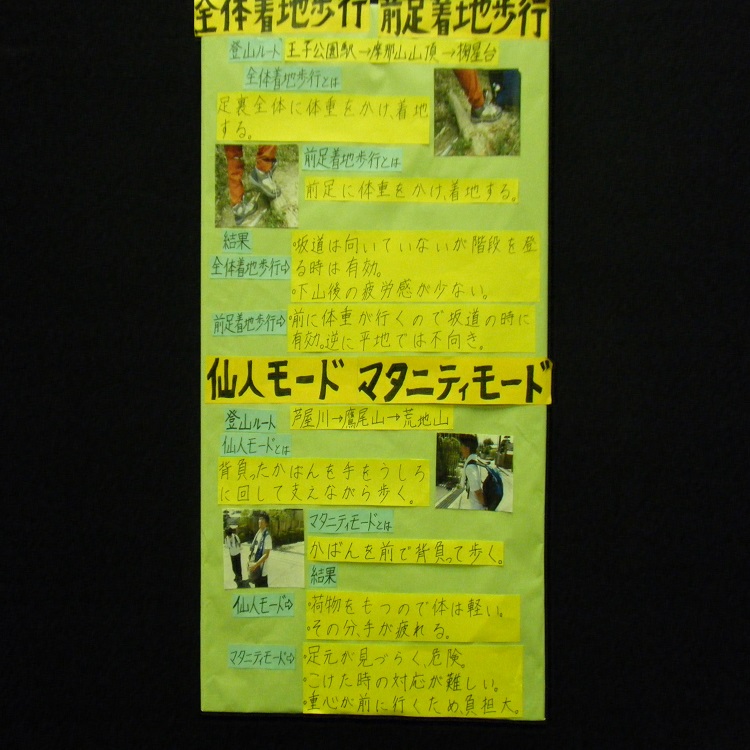 全体着地歩行・前足着地歩行
登山ルート 王子公園駅→摩耶山山頂→掬星台
全体着地歩行とは
足裏全体に体重をかけ、着地
する。
前足着地歩行とは
前足に体重をかけ、着地する。
結果
全体着地歩行⇨
・坂道は向いていないが階段を登
る時は有効。
・下山後の疲労感が少ない。
前足着地歩行⇨
・前に体重が行くので坂道の時に
有効。逆に平地では不向き。
仙人モード マタニティモード
登山ルート 芦屋川→鷹尾山→荒地山
仙人モードとは
背負ったかばんを手をうしろ
に回して支えながら歩く。
マタニティモードとは
かばんを前で背負って歩く。
結果
仙人モード⇨
・荷物をもつので体は軽い。
・その分、手が疲れる。
マタニティモード⇨
・足元が見づらく、危険。
・こけた時の対応が難しい。
・重心が前に行くため、負担大。